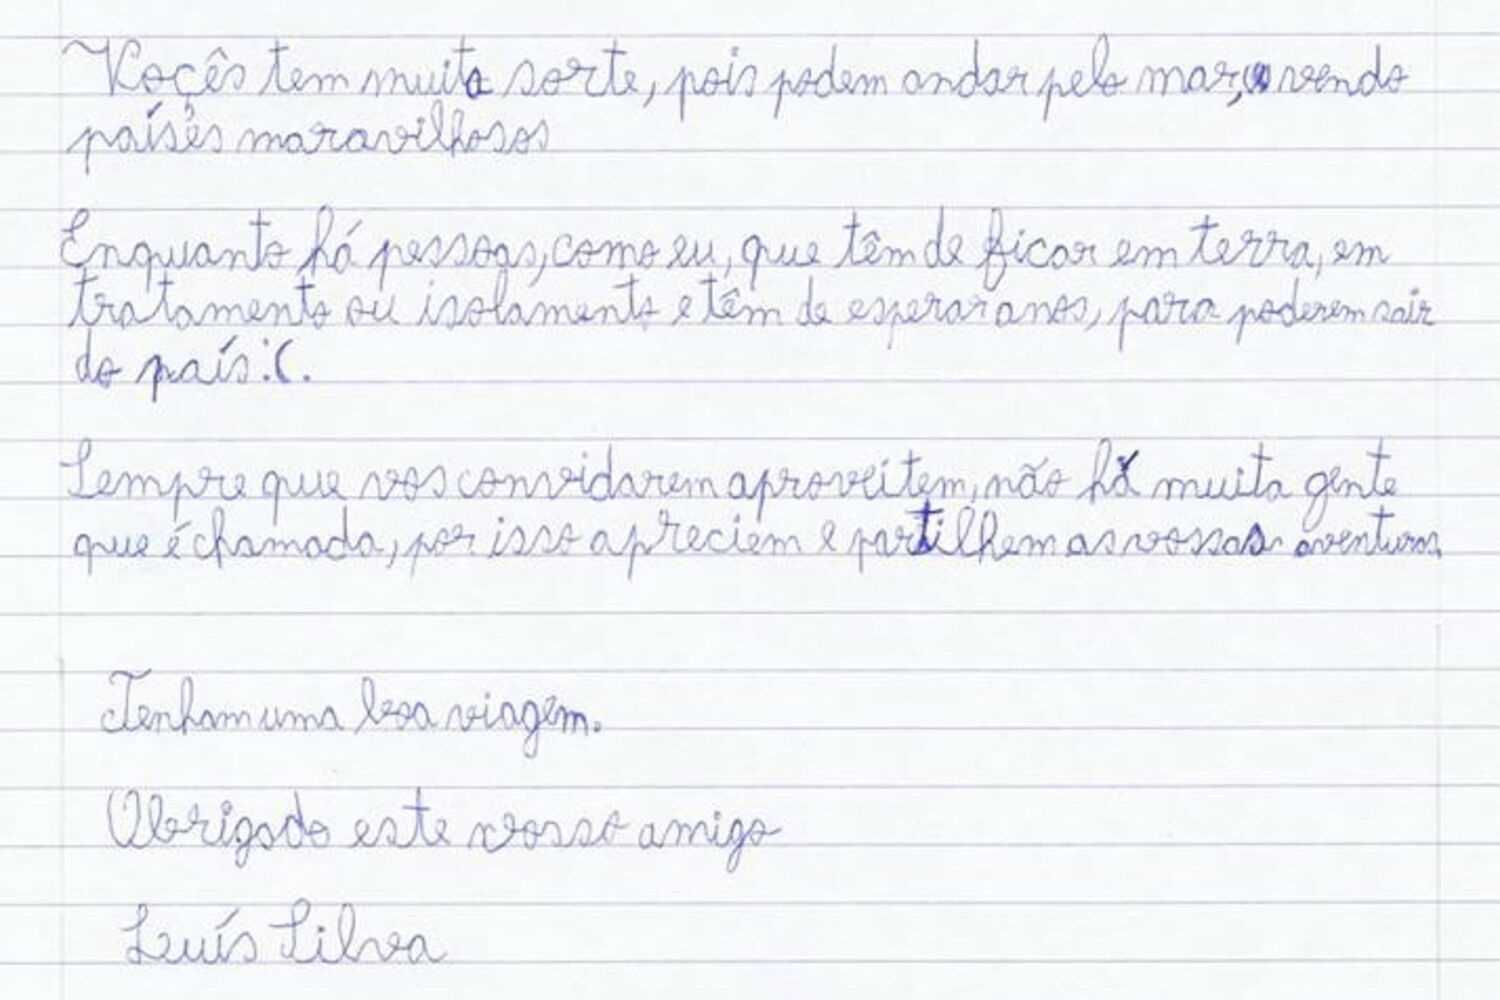 Voçês tem muita sorte, pois podem andar pelo mar, vendo
países maravilhosos
Enquanto há pessoas, como eu, que têm de ficar em terra, em
tratamento ou isolamento e têm de esperar anos, para poderem sair
do país :(.
Sempre que vos convidarem aproveitem, não há muita gente
que é chamada, por isso apreciem e partilhem as vossas aventuras.
Tenham uma boa viagem.
Obrigado este vosso amigo
Luís Silva